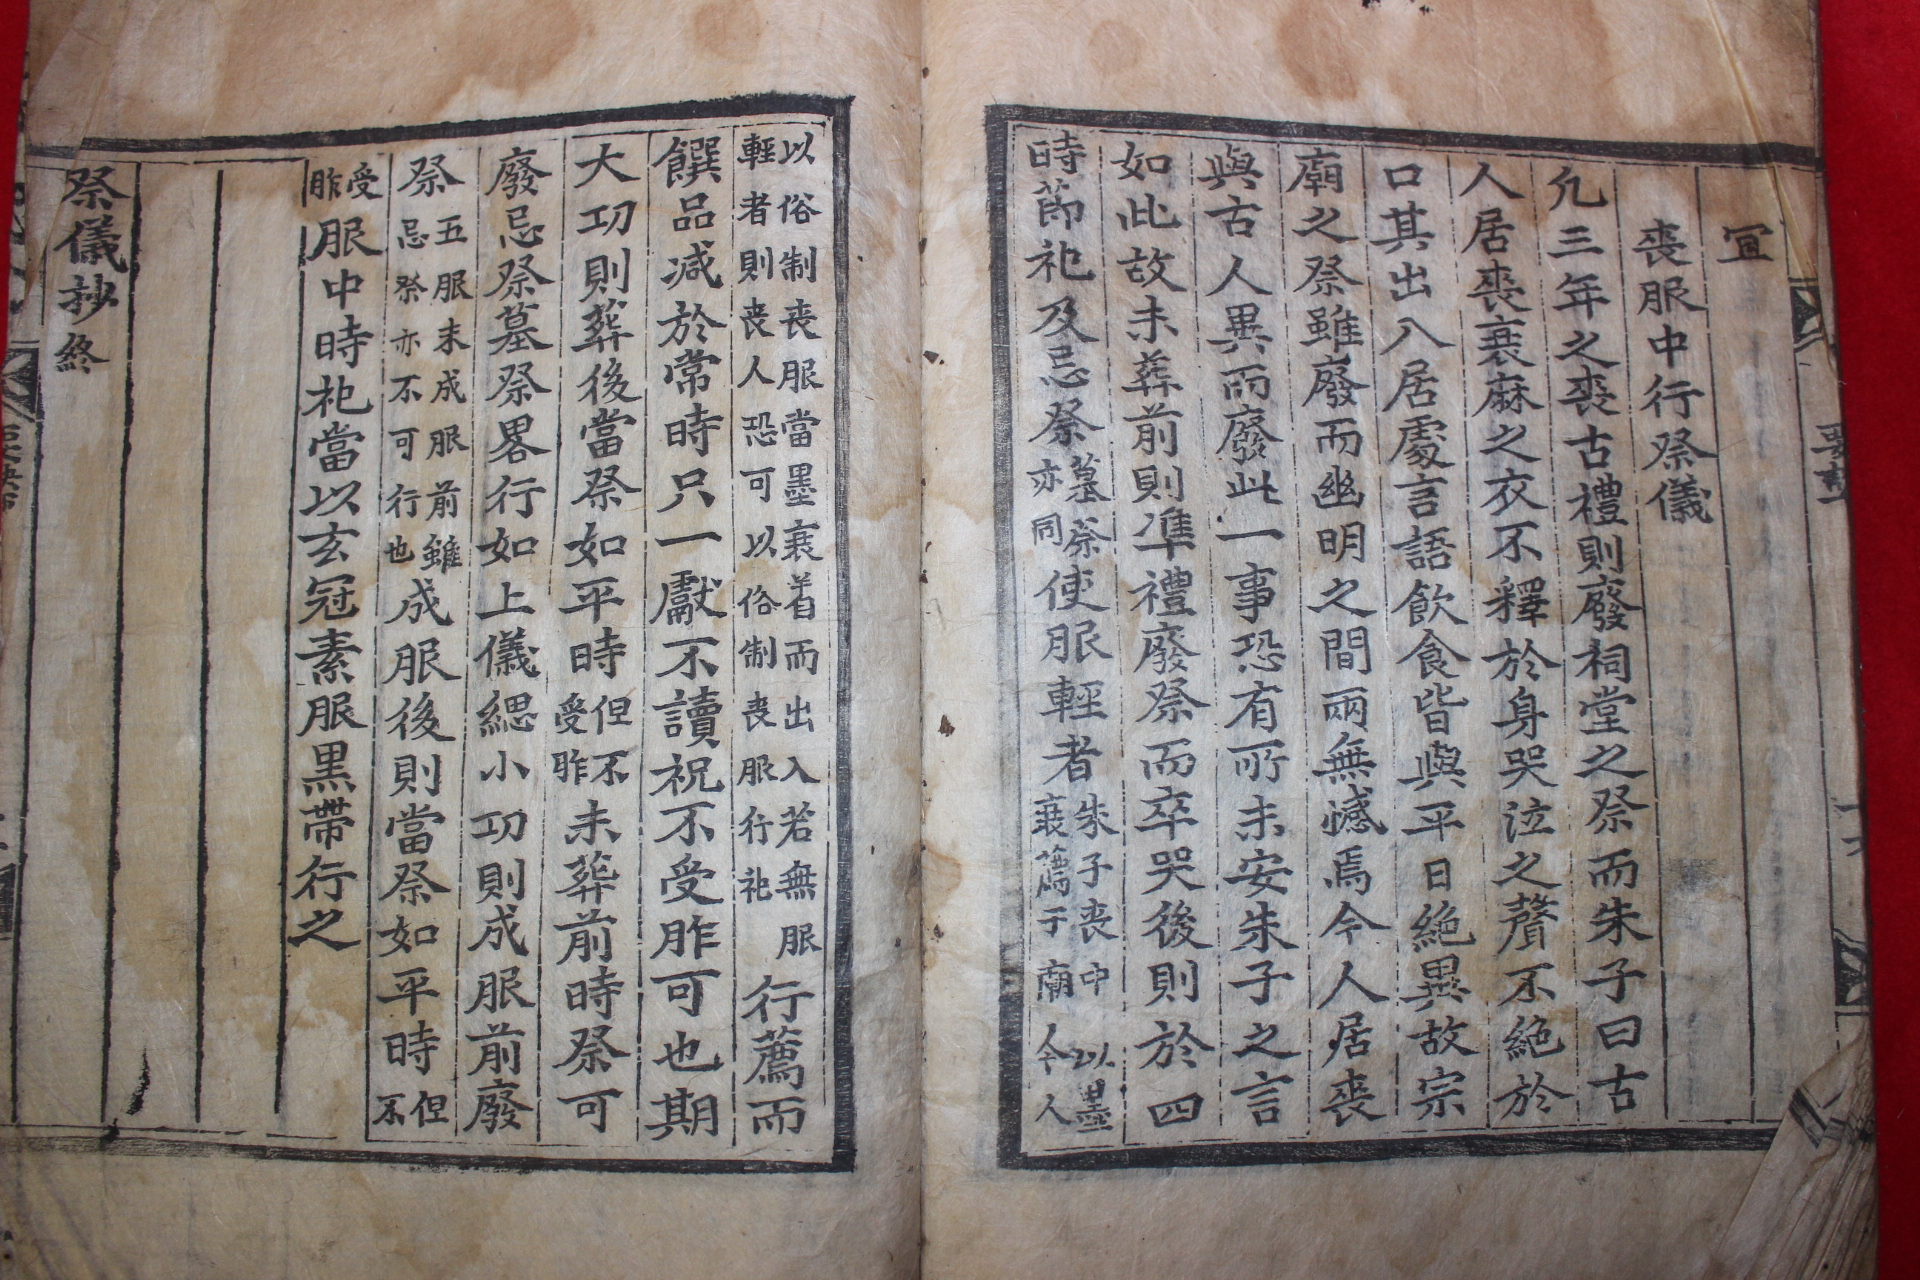 宜
喪服中行祭儀
凢三年之喪古禮則廢祠堂之祭而朱子曰古
人居喪衰麻之衣不釋於身哭泣之聲不絶於
口其出入居處言語飮食皆與平日絶異故宗
廟之祭雖廢而幽明之間兩無憾焉今人居喪
與古人異而廢此一事恐有所未安朱子之言
如此故未葬前則凖禮廢祭而卒哭後則於四
時節祀及忌祭墓祭亦同使服輕者朱子喪中以墨衰薦于廟今人
以俗制喪服當墨衰着而出入若無服輕者則喪人恐可以俗制喪服行祀行薦而
饌品减於常時只一獻不讀祝不受胙可也期
大功則葬後當祭如平時但不受胙未葬前時祭可
廢忌祭墓祭畧行如上儀緦小功則成服前廢
祭五服未成服前雖忌祭亦不可行也成服後則當祭如平時但不
受胙服中時祀當以玄冠素服黒帶行之
祭儀抄終